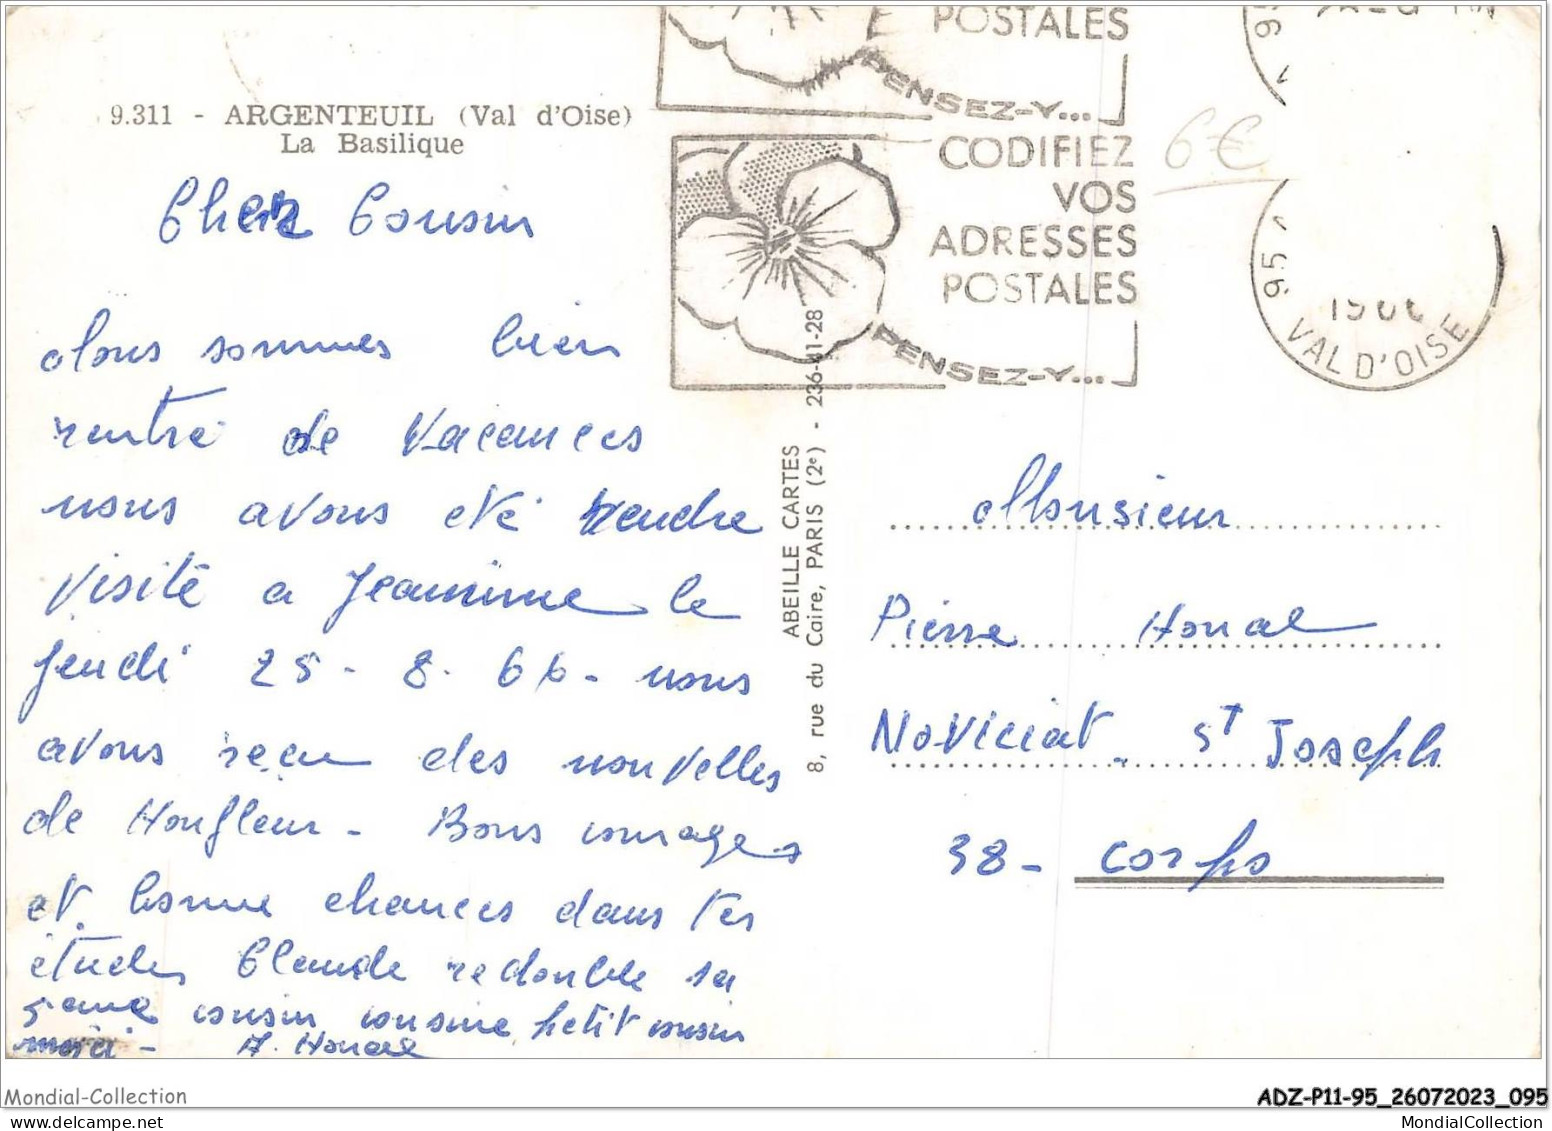 POSTALES
PENSEZ-Y...
9.311 - ARGENTEUIL (Val d'Oise)
La Basilique
CODIFIEZ
VOS
ADRESSES
POSTALES
PENSEZ-Y...
6€
95
VAL D'OISE
Cher Cousin
Nous sommes bien
rentré de Vacances
nous avons été rendre
Visité a Jeannine le
jeudi 25-8-66- nous
avons reçu des nouvelles
de Honfleur - Bons courages
et bonne chances dans tes
études Claude redouble sa
5eme cousin cousine petit cousin
merci - A. Houal
ABEILLE CARTES
8, rue du Caire, PARIS (2e) - 236-41-28
Monsieur
Pierre Houal
Noviciat. St Joseph
38- Corps
Mondial-Collection
ADZ-P11-95_26072023_095
MondialCollection